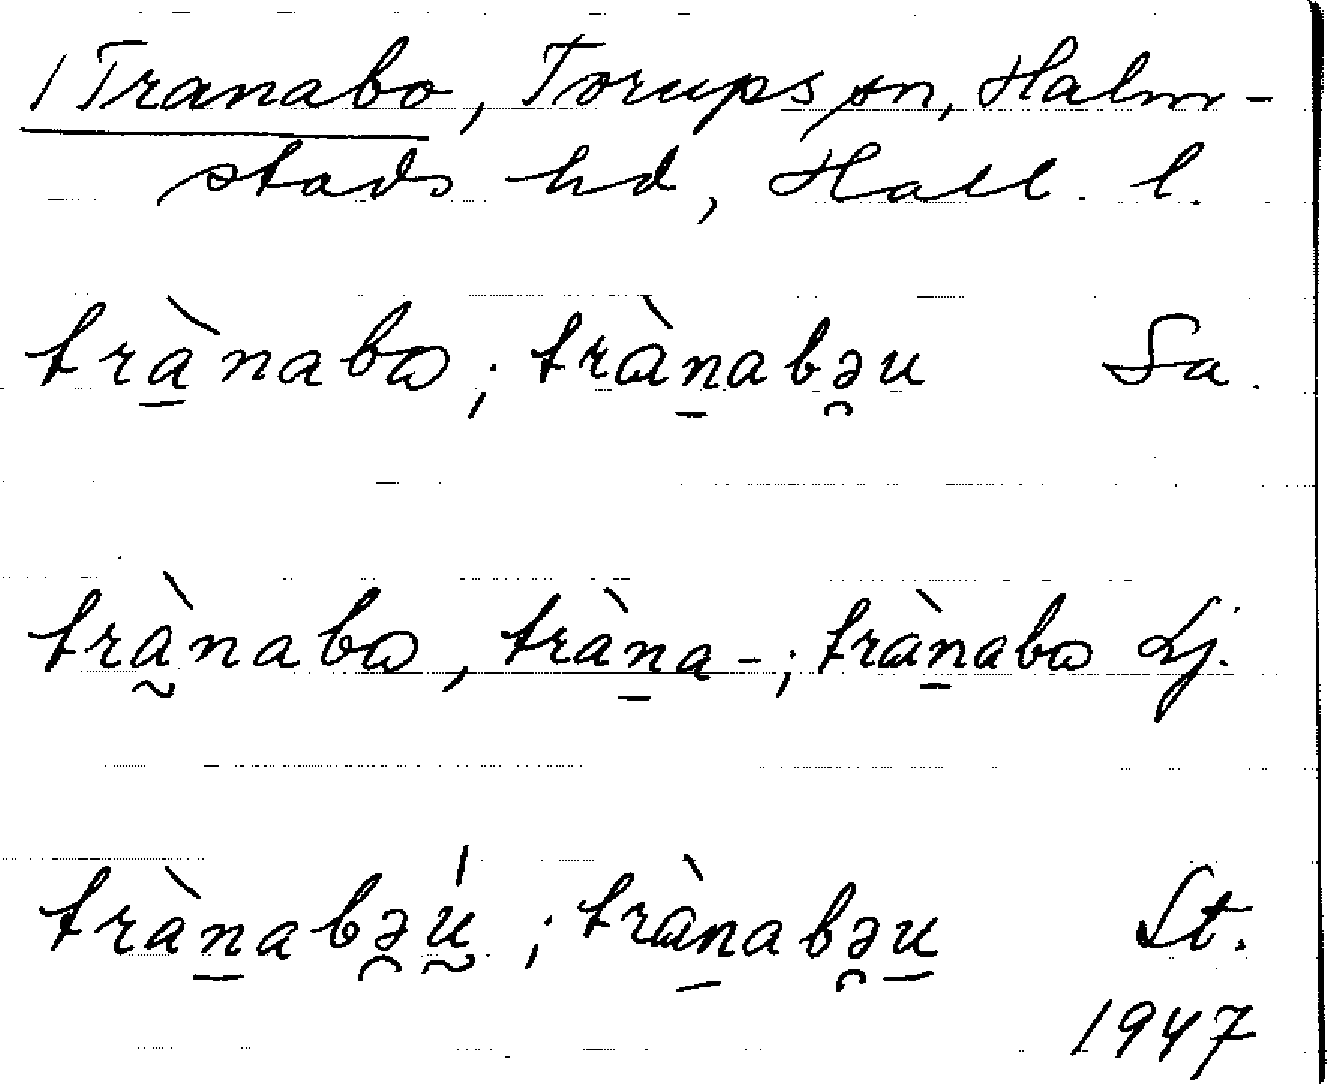 1 Tranabo, Torups sn, Halm-
stads hd, Hall. l.
trà̱nabɷ; tràṉabə̯u Sa.
trà̰nabɷ, tràṉa-; tràṉabɷ Lj.
tràṉabə̯ṵ́; tràṉabə̯u̱ St.
1947